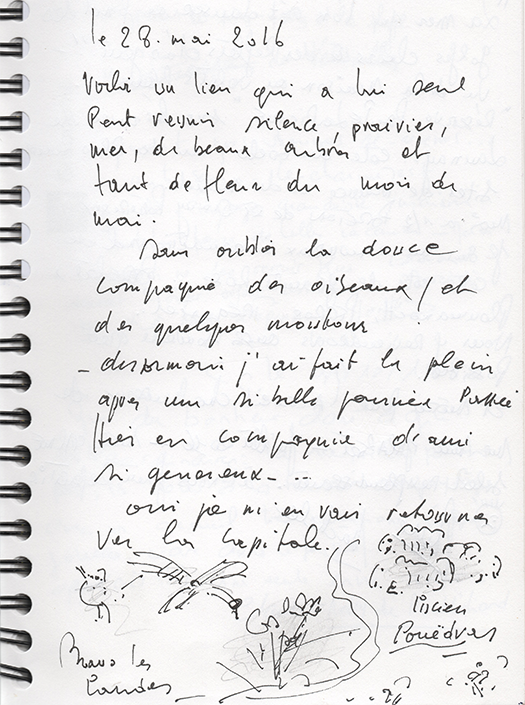 le 28. mai 2016
Voila un lieu qui a lui seul
Peut reunir silence, prairies,
mer, de beaux arbres et
tant de fleur du mois de
mai.
Sans oublier la douce
compagnie des oiseaux / et
des quelques moutons
- desormais j'ai fait le plein
apres une si belle journée Passée
hier en compagnie d'ami
si genereux - ...
oui je m'en vais retourner
Ver la Capitale.
Lucien
Pouëdras
Bravo les